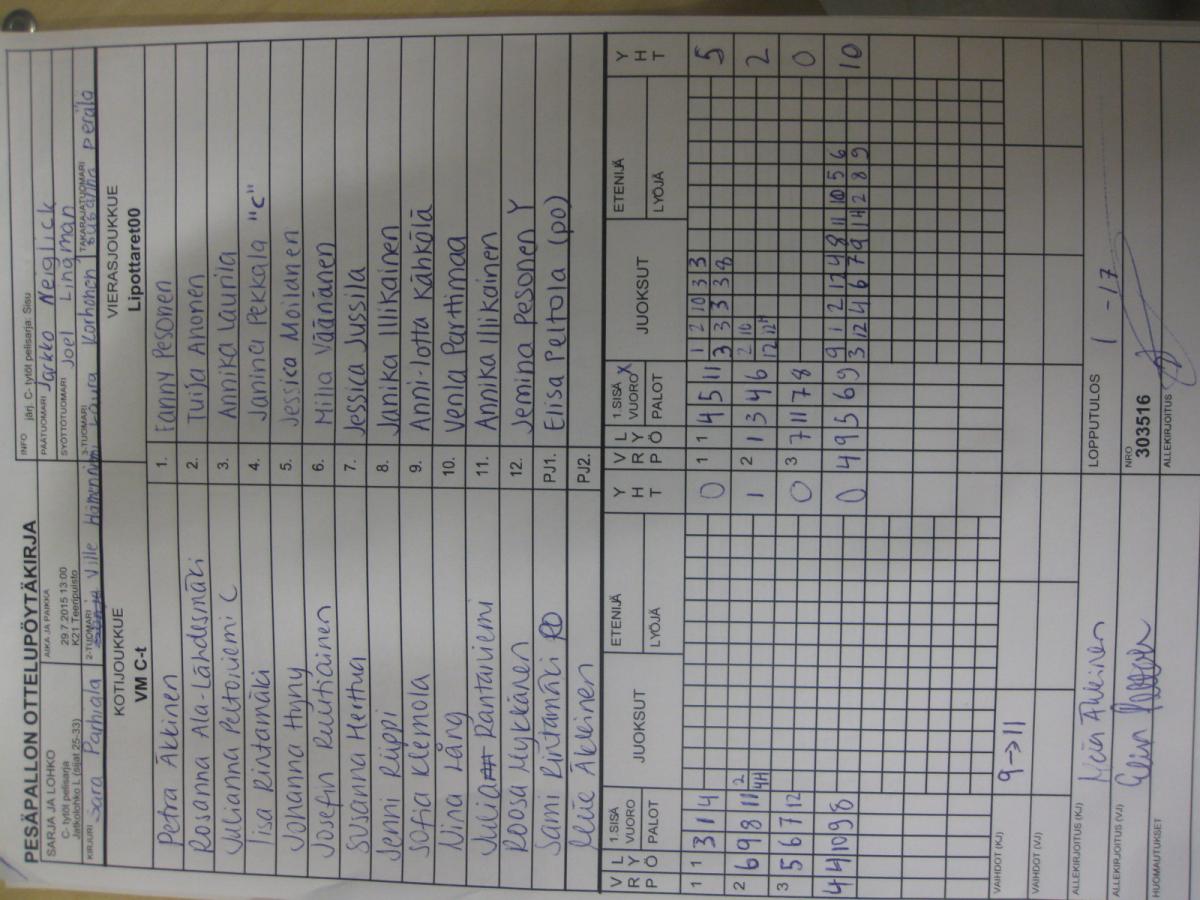 PESÄPALLON OTTELUPÖYTÄKIRJA
SARJA JA LOHKO
C- tytöt pelisarja
Jatkolohko L (sijat 25-33)
AIKA JA PAIKKA
29.7.2015 13:00
K21 Teeripuisto
INFO järj. C- tytöt pelisarja: Sisu
PÄÄTUOMARI Jarkko Neiglick
SYÖTTÖTUOMARI Joel Lingman
KIRJURI Sara
2-TUOMARI Ville
3-TUOMARI Laura Korhonen
TAKARAJATUOMARI Susanna Perälä
KOTIJOUKKUE
VM C-t
Petra Äkkinen
Rosanna Ala-Lähdesmäki
Julianna Peltoniemi C
Iisa Rintamäki
Johanna Hyny
Josefin Ruutiainen
Susanna Herttua
Jenni Riippi
Sofia Klemola
Nina Lång
Julia Rantaniemi
Roosa Mykkänen
Sami Rintamäki PO
Äkkinen
VIERASJOUKKUE
Lipottaret00
1. Fanny Pesonen
2. Tuija Anonen
3. Annika Laurila
4. Janina Pekkala "C"
5. Jessica Moilanen
6. Milla Väänänen
7. Jessica Jussila
8. Janika Illikainen
9. Anni-Lotta Kähkölä
10. Venla Parttimaa
11. Annika Illikainen
12. Jemina Pesonen Y
PJ1. Elisa Peltola (po)
PJ2.
VRP LYÖ 1.SISÄ VUORO PALOT JUOKSUT ETENIJÄ LYÖJÄ YHT
1 1 3 1 4 0
2 6 9 8 11 2 4H 1
3 5 6 7 12 0
4 4 10 9 8 0
VRP LYÖ 1.SISÄ VUORO X PALOT JUOKSUT ETENIJÄ LYÖJÄ YHT
1 1 4 5 11 1 2 10 3 3 5
3 3 3 3 8
2 1 3 4 6 2 10 2
12 12H
3 7 11 7 8 0
4 9 5 6 9 9 1 2 12 4 8 11 10 5 6 10
3 12 4 6 7 9 1 4 2 8 9
VAIHDOT (KJ) 9->11
VAIHDOT (VJ)
LOPPUTULOS 1 - 17
ALLEKIRJOITUS (KJ) Äkkinen
ALLEKIRJOITUS (VJ)
NRO
303516
HUOMAUTUKSET
ALLEKIRJOITUS